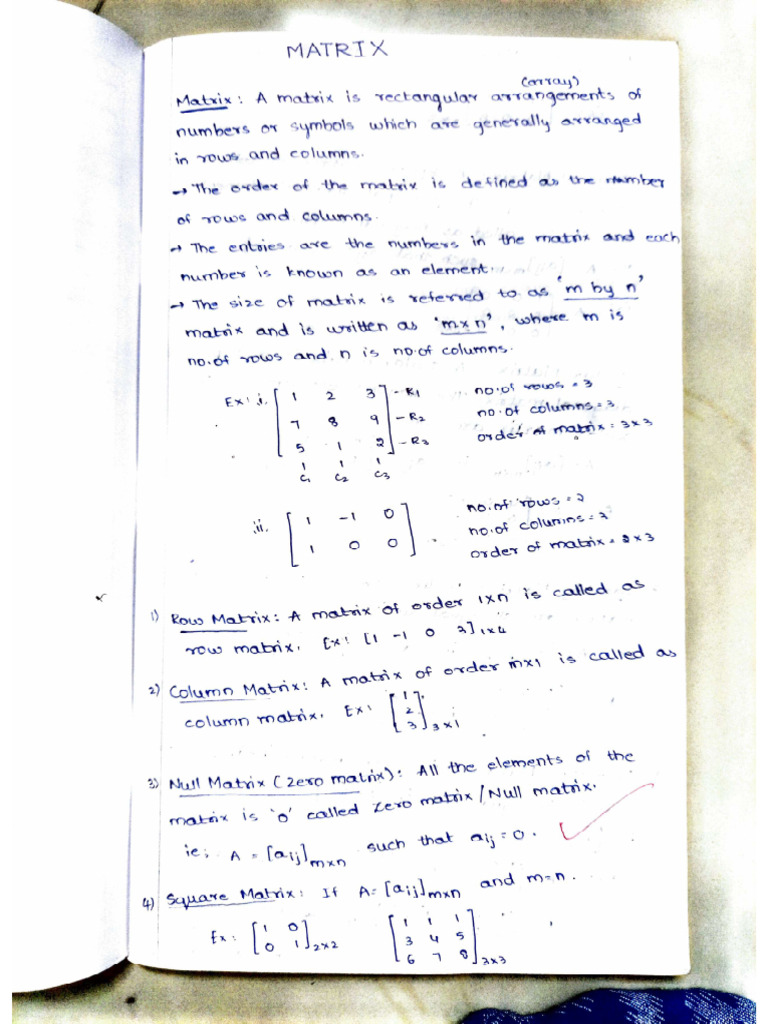 MATRIX
(array)
Matrix: A matrix is rectangular arrangements of
numbers or symbols which are generally arranged
in rows and columns.
→ The order of the matrix is defined as the number
of rows and columns.
→ The entries are the numbers in the matrix and each
number is known as an element.
→ The size of matrix is referred to as 'm by n'
matrix and is written as 'm×n', where m is
no.of rows and n is no.of columns.
Ex: i. [1 2 3] - R1 no.of rows = 3
[7 8 9] - R2 no.of columns = 3
[5 1 2] - R3 order of matrix = 3×3
C1 C2 C3
ii. [1 -1 0] no.of rows = 2
[1 0 0] no.of columns = 3
order of matrix = 2×3
1) Row Matrix: A matrix of order 1×n is called as
row matrix. Ex: [1 -1 0 3]1×4
2) Column Matrix: A matrix of order m×1 is called as
column matrix. Ex: [1 2 3]3×1
3) Null Matrix (Zero matrix): All the elements of the
matrix is '0' called zero matrix/Null matrix.
ie; A = [aij]m×n such that aij = 0.
4) Square Matrix: If A=[aij]m×n and m=n.
Ex: [1 0] [1 1 1]
[0 1]2×2 [3 4 5]
[6 7 8]3×3